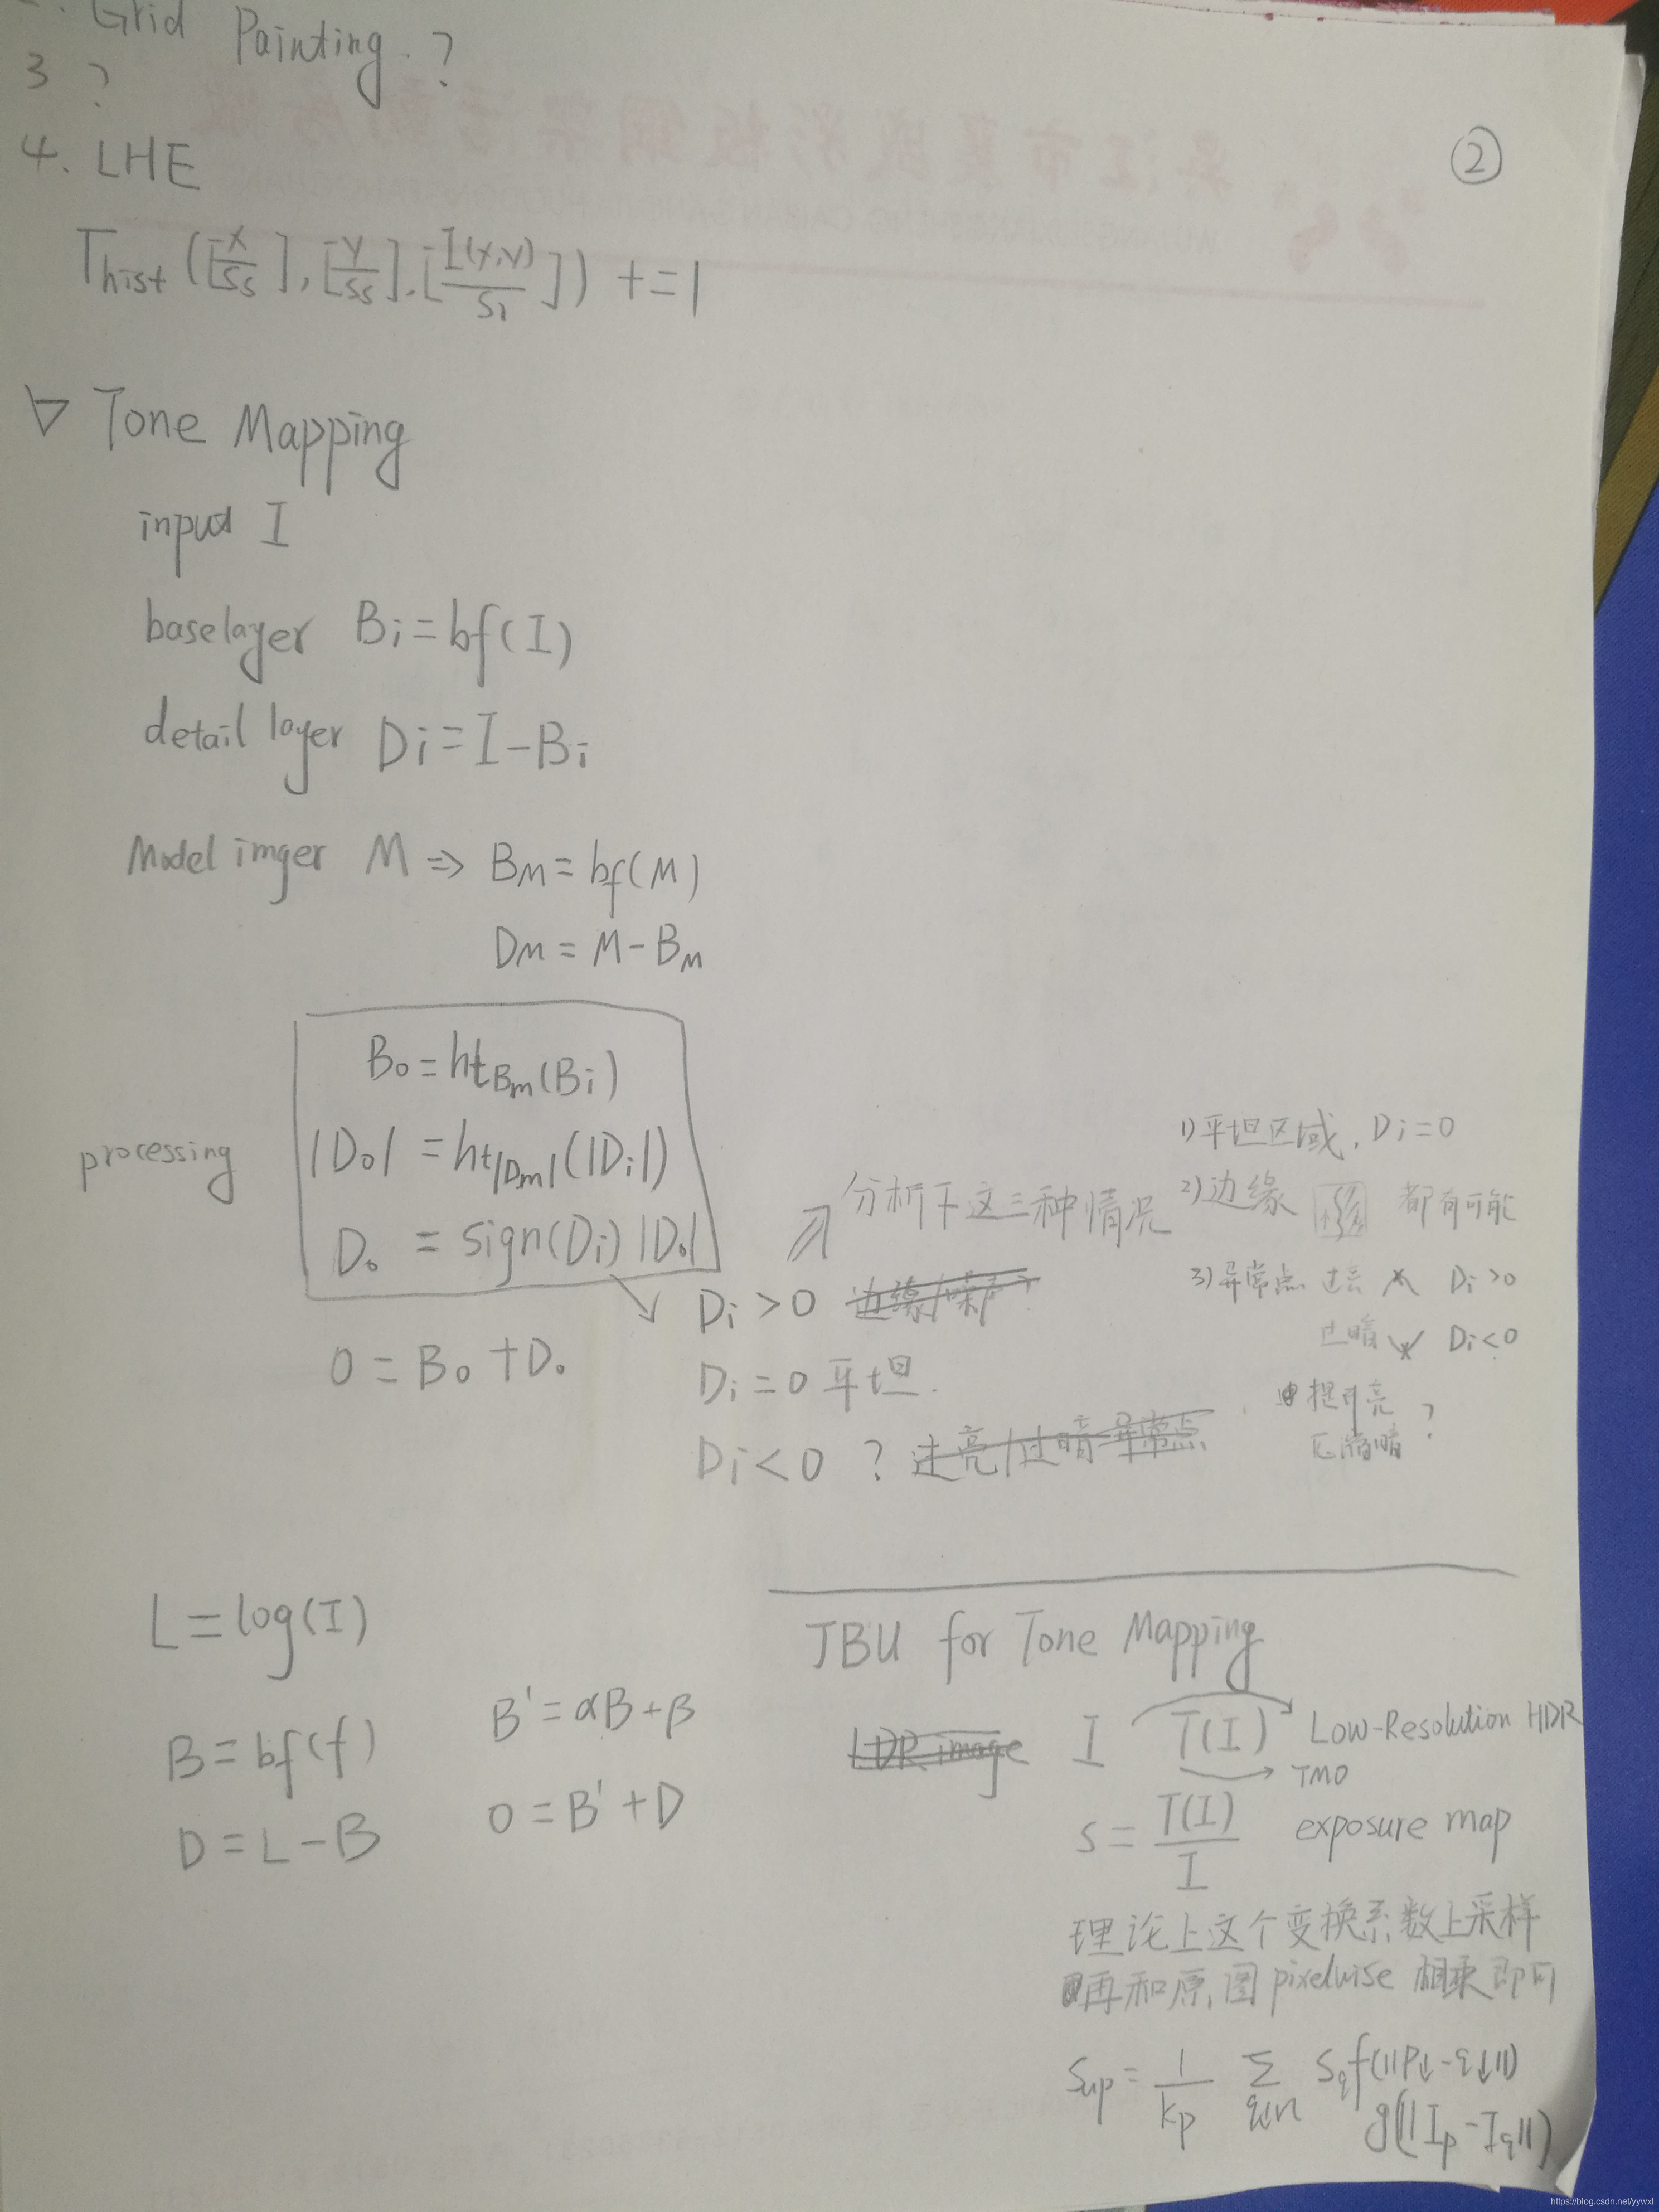 Grid Painting. ?
3 ?
4. LHE
②
T_hist([x/Ss], [y/Ss], [I(x,y)/Si]) += 1
▽ Tone Mapping
input I
baselayer Bi = bf(I)
detail layer Di = I - Bi
Model imger M => BM = bf(M)
DM = M - BM
processing
Bo = ht_Bm(Bi)
|Do| = ht_|Dm|(|Di|)
Do = sign(Di)|Do|
O = Bo + Do
分析下这三种情况
1) 平坦区域, Di = 0
2) 边缘 都有可能
3) 异常点 过亮 Di > 0
过暗 Di < 0
提亮
暗 ?
Di > 0 边缘/噪声
Di = 0 平坦.
Di < 0 ? 过亮/过暗异常点
L = log(I)
B = bf(f)
D = L - B
B' = αB + β
O = B' + D
JBU for Tone Mapping
LDR image I T(I) Low-Resolution HDR
TMO
S = T(I)/I exposure map
理论上这个变换系数上采样
再和原图 pixelwise 相乘即可
Sup = 1/kp Σ Sq f(||P↓ - q↓||)
g(||Ip - Iq||)
https://blog.csdn.net/yywxl